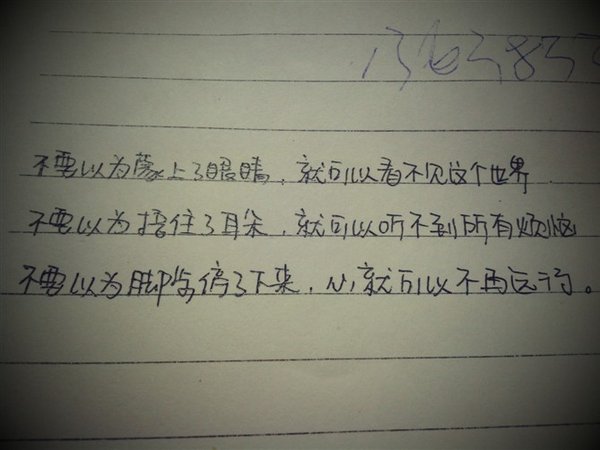 不要以为蒙上了眼睛，就可以看不见这个世界
不要以为捂住了耳朵，就可以听不到所有烦恼
不要以为脚步停了下来，心就可以不再远行。